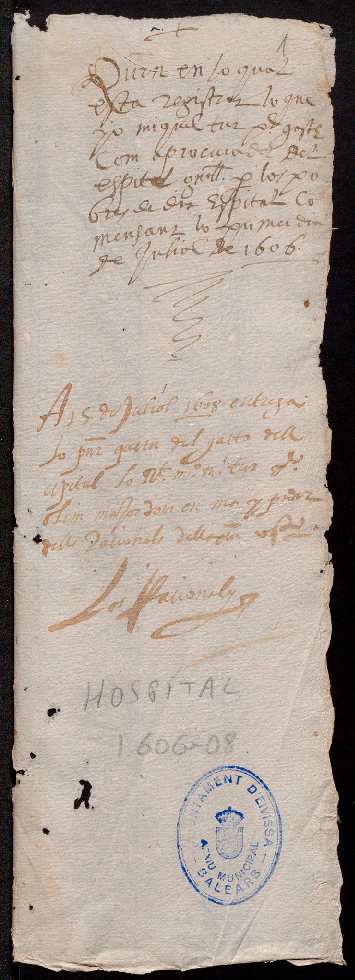 1
Quern en lo qual
esta registrat lo que
yo miquel tur pre gastz
Com a procurador del
espital per los po
bres de dit espital Co
mensant lo primer dia
de Juliol de 1606
A 15 de Juliol 1608 entrega
lo pnt quern del gasto del
espital lo dit miquel tur
olim en ma y poder
dells Racionals
Los Racionals
HOSPITAL
1606-08
AJUNTAMENT D'EIVISSA
ARXIU MUNICIPAL
BALEARS